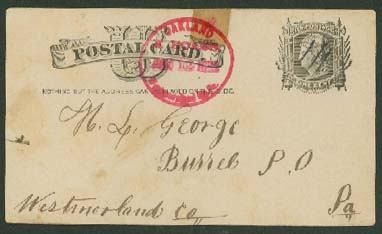 OAKLAND
POSTAL CARD.
NOTHING BUT THE ADDRESS CAN BE PLACED ON THIS SIDE.
H. L. George
Burrel P.O
Westmorland Co Pa